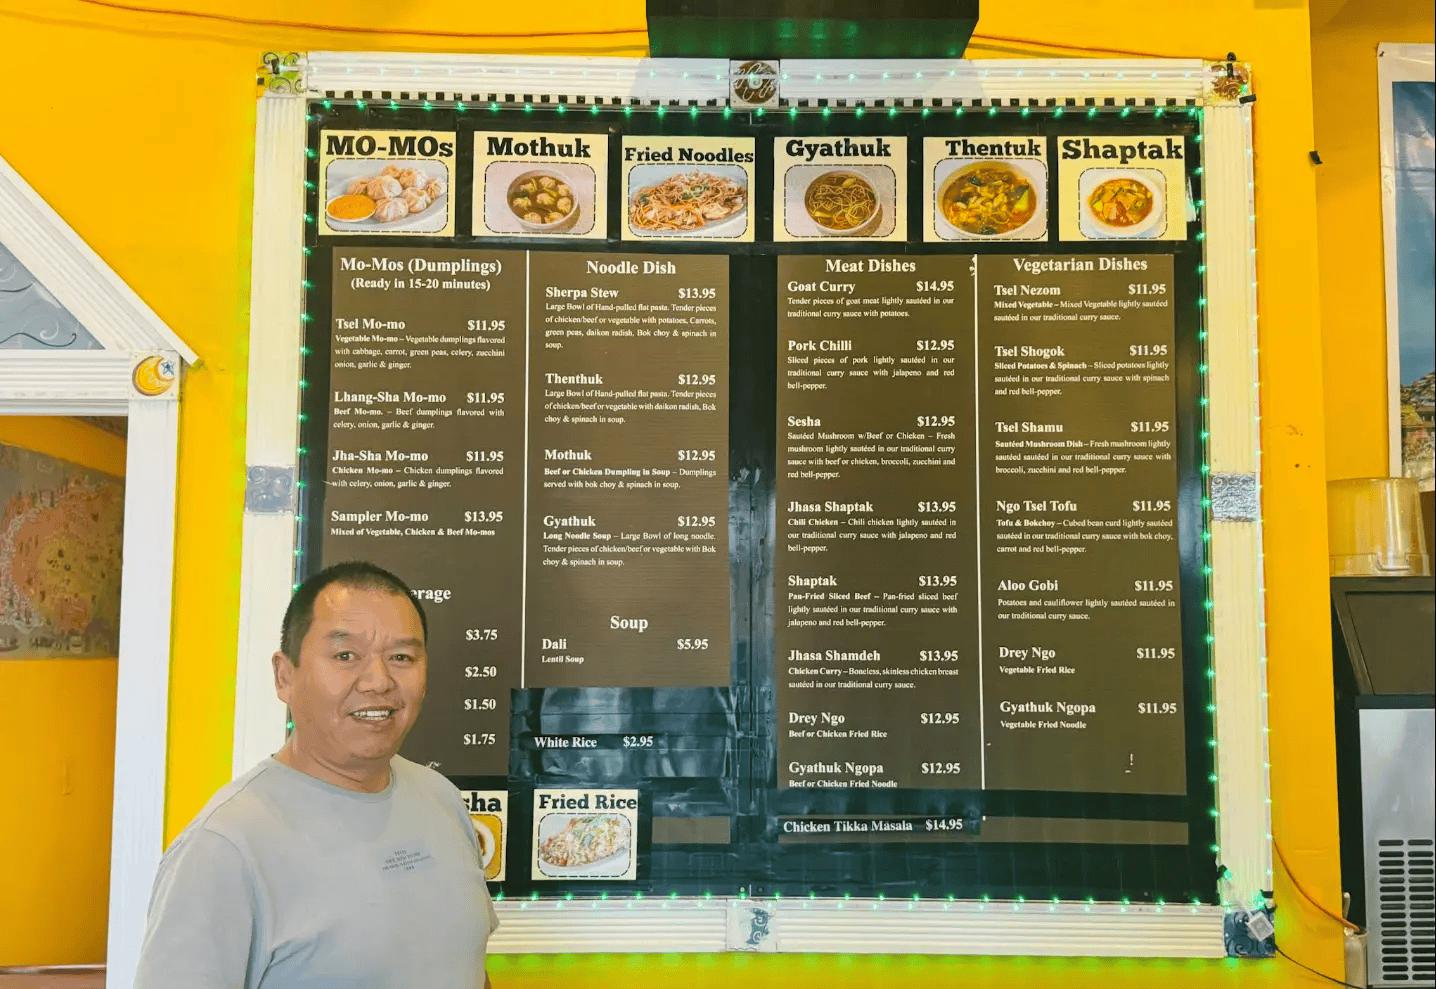 MO-MOs
Mothuk
Fried Noodles
Gyathuk
Thentuk
Shaptak
Mo-Mos (Dumplings)
(Ready in 15-20 minutes)
Tsel Mo-mo $11.95
Vegetable Mo-mo – Vegetable dumplings flavored
with cabbage, carrot, green peas, celery, zucchini
onion, garlic & ginger.
Lhang-Sha Mo-mo $11.95
Beef Mo-mo. – Beef dumplings flavored with
celery, onion, garlic & ginger.
Jha-Sha Mo-mo $11.95
Chicken Mo-mo – Chicken dumplings flavored
with celery, onion, garlic & ginger.
Sampler Mo-mo $13.95
Mixed of Vegetable, Chicken & Beef Mo-mos
erage
$3.75
$2.50
$1.50
$1.75
Noodle Dish
Sherpa Stew $13.95
Large Bowl of Hand-pulled flat pasta. Tender pieces
of chicken/beef or vegetable with potatoes. Carrots,
green peas, daikon radish, Bok choy & spinach in
soup.
Thenthuk $12.95
Large Bowl of Hand-pulled flat pasta. Tender pieces
of chicken/beef or vegetable with daikon radish, Bok
choy & spinach in soup.
Mothuk $12.95
Beef or Chicken Dumpling in Soup – Dumplings
served with bok choy & spinach in soup.
Gyathuk $12.95
Long Noodle Soup – Large Bowl of long noodle.
Tender pieces of chicken/beef or vegetable with Bok
choy & spinach in soup.
Soup
Dali $5.95
Lentil Soup
White Rice $2.95
sha
Fried Rice
Meat Dishes
Goat Curry $14.95
Tender pieces of goat meat lightly sautéed in our
traditional curry sauce with potatoes.
Pork Chilli $12.95
Sliced pieces of pork lightly sautéed in our
traditional curry sauce with jalapeno and red
bell-pepper.
Sesha $12.95
Sautéed Mushroom w/Beef or Chicken – Fresh
mushroom lightly sautéed in our traditional curry
sauce with beef or chicken, broccoli, zucchini and
red bell-pepper.
Jhasa Shaptak $13.95
Chili Chicken – Chili chicken lightly sautéed in
our traditional curry sauce with jalapeno and red
bell-pepper.
Shaptak $13.95
Pan-Fried Sliced Beef – Pan-fried sliced beef
lightly sautéed in our traditional curry sauce with
jalapeno and red bell-pepper.
Jhasa Shamdeh $13.95
Chicken Curry – Boneless, skinless chicken breast
sautéed in our traditional curry sauce.
Drey Ngo $12.95
Beef or Chicken Fried Rice
Gyathuk Ngopa $12.95
Beef or Chicken Fried Noodle
Chicken Tikka Masala $14.95
Vegetarian Dishes
Tsel Nezom $11.95
Mixed Vegetable – Mixed Vegetable lightly sautéed
sautéed in our traditional curry sauce.
Tsel Shogok $11.95
Sliced Potatoes & Spinach – Sliced potatoes lightly
sautéed in our traditional curry sauce with spinach
and red bell-pepper.
Tsel Shamu $11.95
Sautéed Mushroom Dish – Fresh mushroom lightly
sautéed in our traditional curry sauce with
broccoli, zucchini and red bell-pepper.
Ngo Tsel Tofu $11.95
Tofu & Bokchoy – Cubed bean curd lightly sautéed
sautéed in our traditional curry sauce with bok choy,
carrot and red bell-pepper.
Aloo Gobi $11.95
Potatoes and cauliflower lightly sautéed sautéed in
our traditional curry sauce.
Drey Ngo $11.95
Vegetable Fried Rice
Gyathuk Ngopa $11.95
Vegetable Fried Noodle